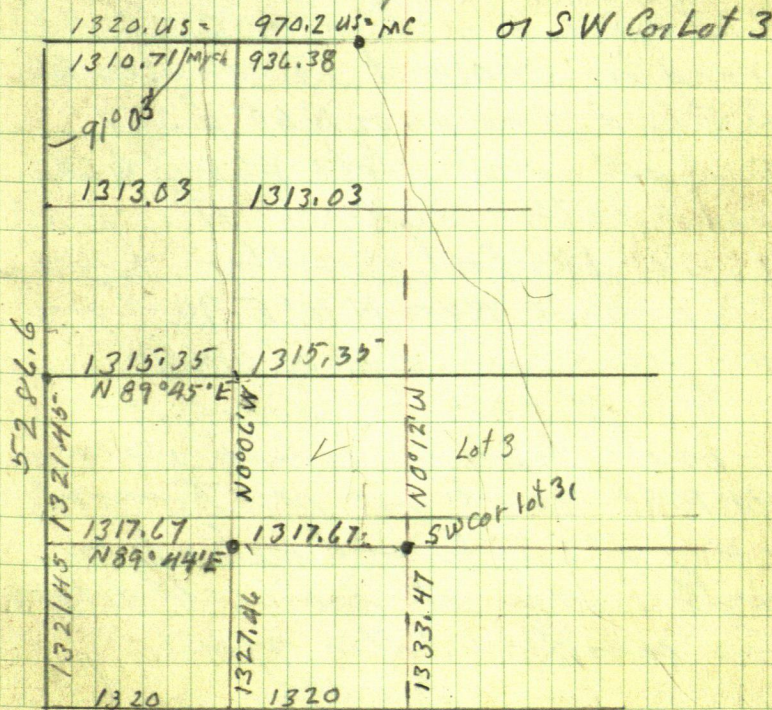 1320. US = 970.2 US = MC or S W Cor Lot 3
1310.71 936.38
91° 03'
1313.03 1313.03
5286.6
1315.35 1315.35
N 89°45' E
1321.45
N0°06'W
N0°12'W
Lot 3
SW cor lot 3
1317.67 1317.67
N89°44'E
1321.45
1327.46
1333.47
1320 1320